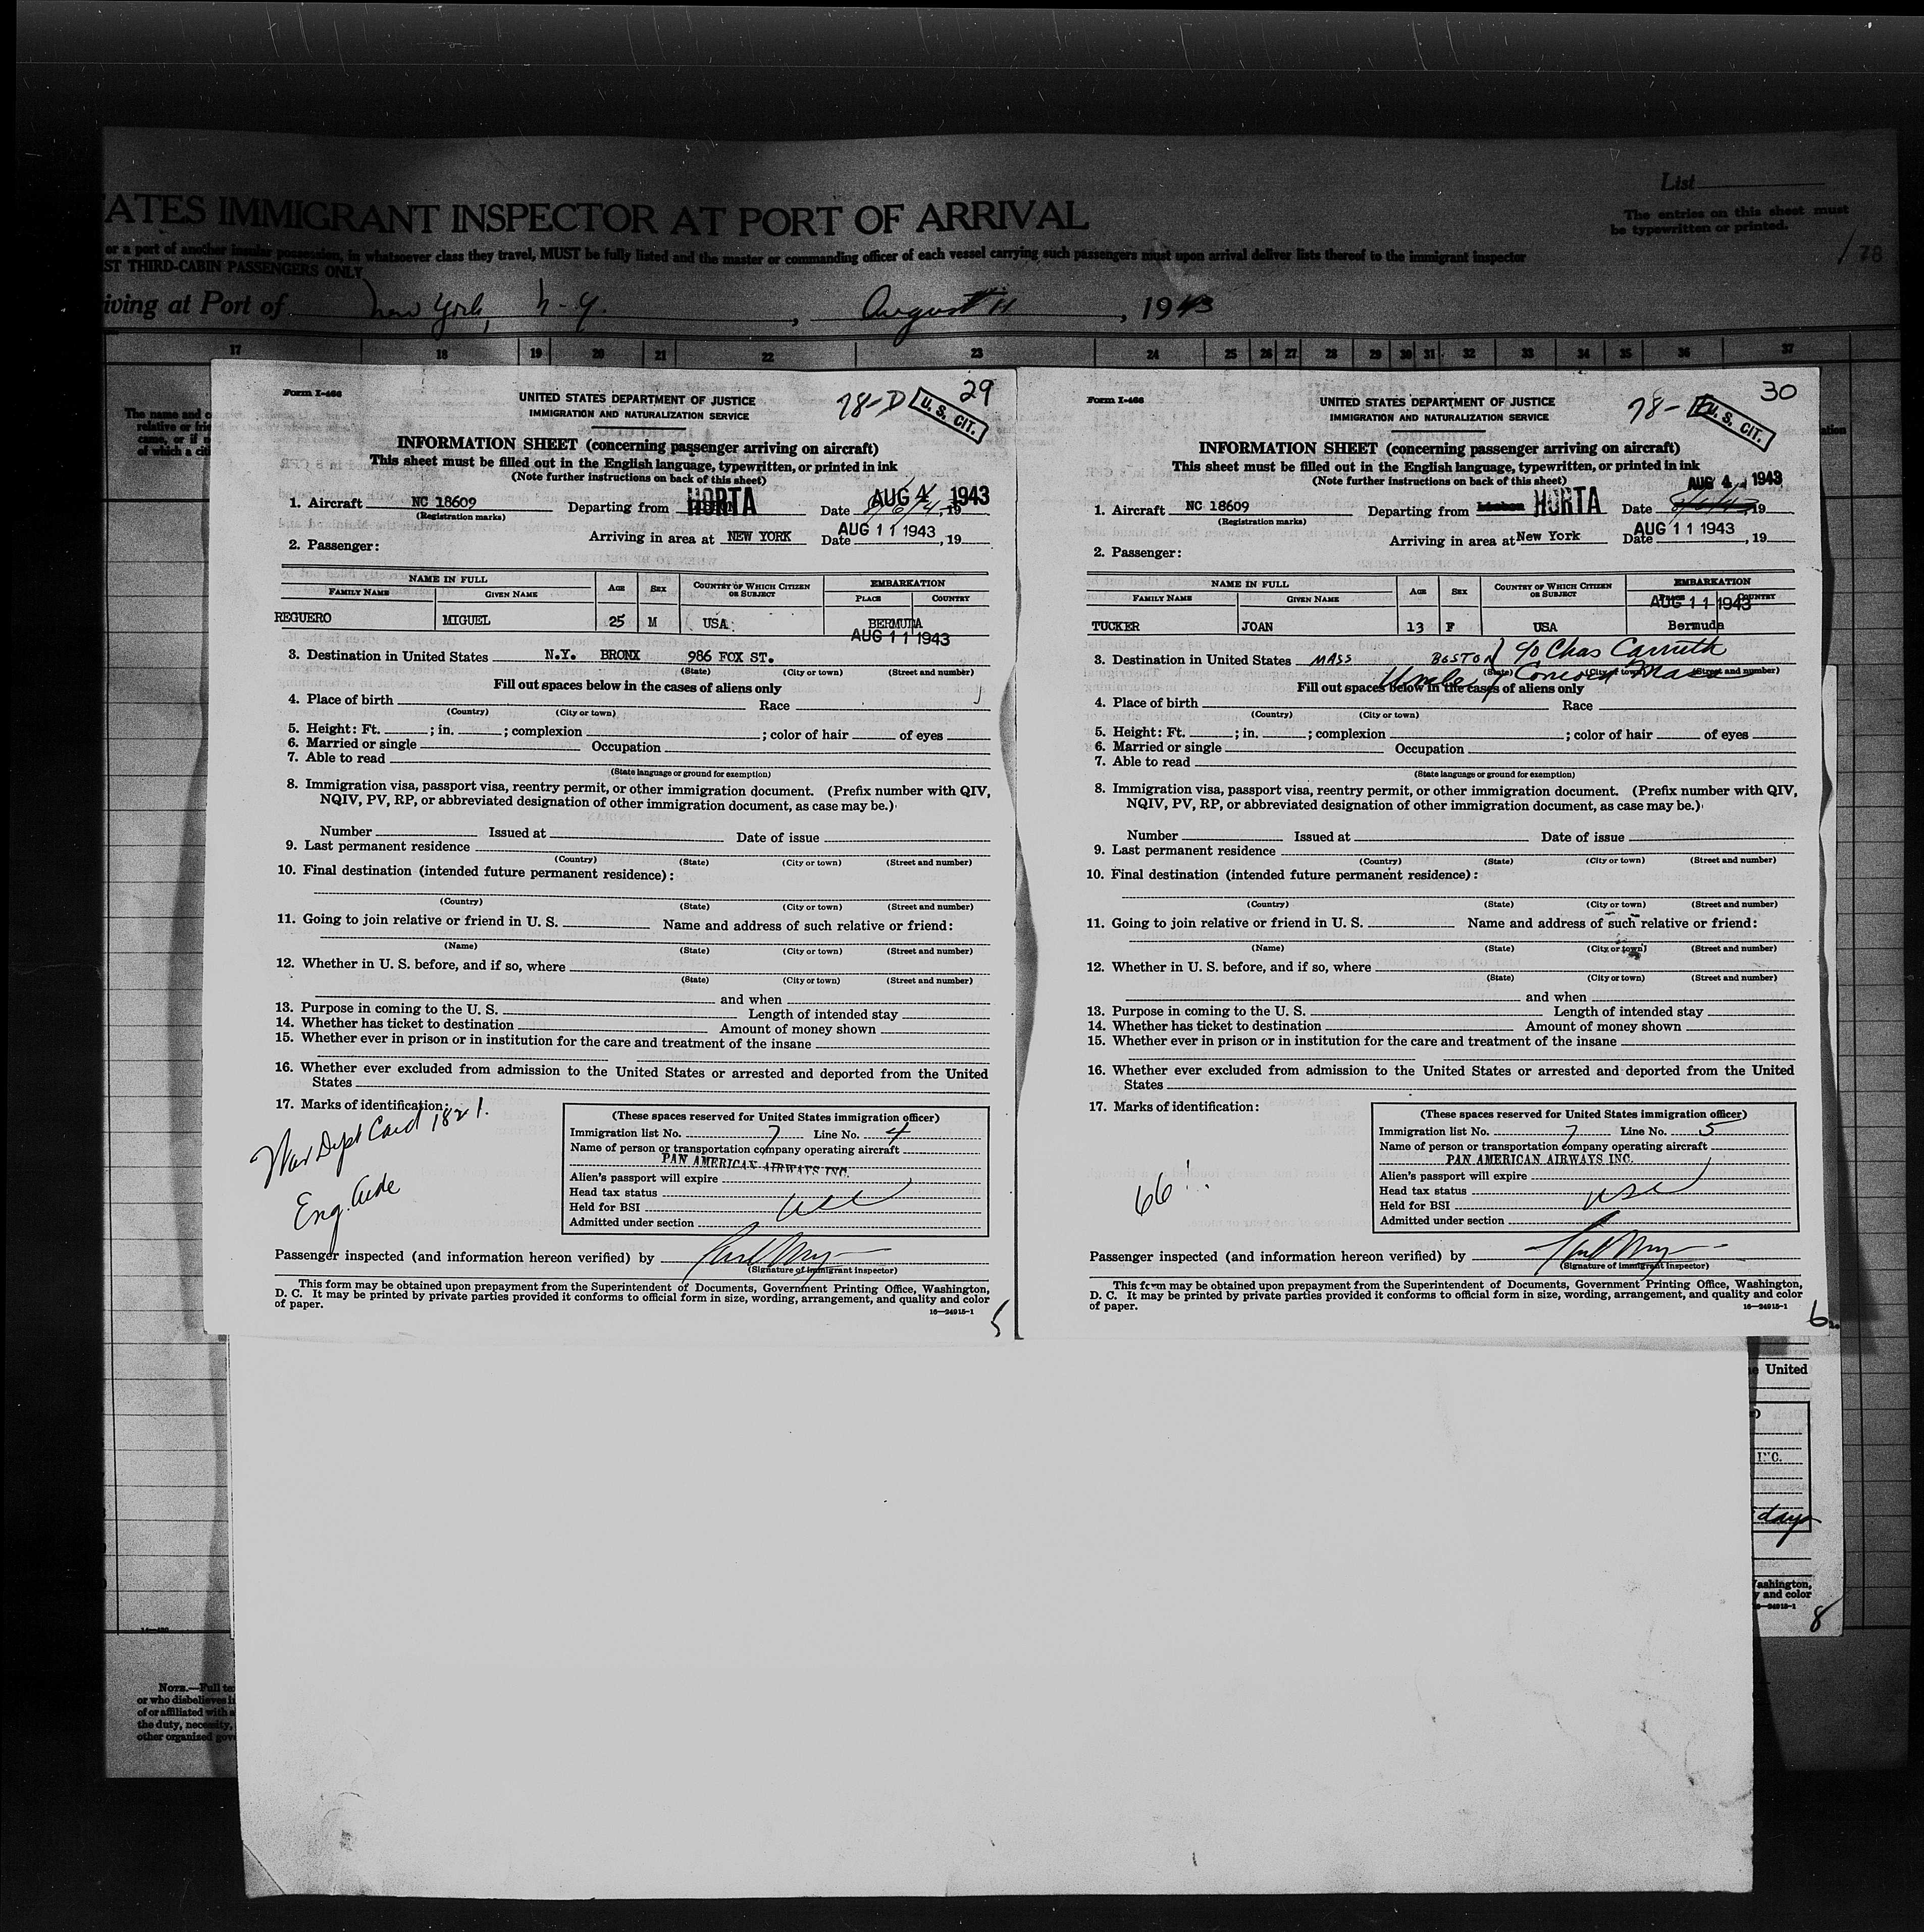 List
ATES IMMIGRANT INSPECTOR AT PORT OF ARRIVAL
The entries on this sheet must
be typewritten or printed.
or a port of another insular possession, in whatsoever class they travel, MUST be fully listed and the master or commanding officer of each vessel carrying such passengers must upon arrival deliver lists thereof to the immigrant inspector
ST THIRD-CABIN PASSENGERS ONLY
78
iving at Port of New York, N-Y. , August 11 , 1943
17 18 19 20 21 22 23 24 25 26 27 28 29 30 31 32 33 34 35 36 37
The name and c
relative or frie
came, or if n
of which a citi
Form I-466
29
UNITED STATES DEPARTMENT OF JUSTICE
78-D
U. S. CIT.
IMMIGRATION AND NATURALIZATION SERVICE
INFORMATION SHEET (concerning passenger arriving on aircraft)
This sheet must be filled out in the English language, typewritten, or printed in ink
(Note further instructions on back of this sheet)
1. Aircraft NC 18609 Departing from HORTA Date AUG 4 1943 , 19
(Registration marks)
Arriving in area at NEW YORK Date AUG 11 1943 , 19
2. Passenger:
NAME IN FULL AGE SEX COUNTRY OF WHICH CITIZEN OR SUBJECT EMBARKATION
FAMILY NAME GIVEN NAME PLACE COUNTRY
REGUERO MIGUEL 25 M USA BERMUDA
AUG 11 1943
3. Destination in United States N.Y. BRONX 986 FOX ST.
(State) (City or town) (Street and number)
Fill out spaces below in the cases of aliens only
4. Place of birth Race
(Country) (City or town)
5. Height: Ft. ; in. ; complexion ; color of hair of eyes
6. Married or single Occupation
7. Able to read
(State language or ground for exemption)
8. Immigration visa, passport visa, reentry permit, or other immigration document. (Prefix number with QIV,
NQIV, PV, RP, or abbreviated designation of other immigration document, as case may be.)
Number Issued at Date of issue
9. Last permanent residence
(Country) (State) (City or town) (Street and number)
10. Final destination (intended future permanent residence):
(Country) (State) (City or town) (Street and number)
11. Going to join relative or friend in U. S. Name and address of such relative or friend:
(Name) (State) (City or town) (Street and number)
12. Whether in U. S. before, and if so, where
(State) (City or town) (Street and number)
and when
13. Purpose in coming to the U. S. Length of intended stay
14. Whether has ticket to destination Amount of money shown
15. Whether ever in prison or in institution for the care and treatment of the insane
16. Whether ever excluded from admission to the United States or arrested and deported from the United
States
17. Marks of identification:
War Dept Card 1821.
Eng. Aide
(These spaces reserved for United States immigration officer)
Immigration list No. 7 Line No. 4
Name of person or transportation company operating aircraft
PAN AMERICAN AIRWAYS INC.
Alien's passport will expire
Head tax status
Held for BSI
Admitted under section
Passenger inspected (and information hereon verified) by
(Signature of immigrant inspector)
This form may be obtained upon prepayment from the Superintendent of Documents, Government Printing Office, Washington,
D. C. It may be printed by private parties provided it conforms to official form in size, wording, arrangement, and quality and color
of paper.
16—24915-1
5
Form I-466
30
UNITED STATES DEPARTMENT OF JUSTICE
78-
U. S. CIT.
IMMIGRATION AND NATURALIZATION SERVICE
INFORMATION SHEET (concerning passenger arriving on aircraft)
This sheet must be filled out in the English language, typewritten, or printed in ink
(Note further instructions on back of this sheet)
1. Aircraft NC 18609 Departing from Lisbon HORTA Date AUG 4 1943 , 19
(Registration marks)
Arriving in area at New York Date AUG 11 1943 , 19
2. Passenger:
NAME IN FULL AGE SEX COUNTRY OF WHICH CITIZEN OR SUBJECT EMBARKATION
FAMILY NAME GIVEN NAME PLACE COUNTRY
AUG 11 1943
TUCKER JOAN 13 F USA Bermuda
3. Destination in United States MASS BOSTON c/o Chas Carruth
Uncle Concord Mass
(State) (City or town) (Street and number)
Fill out spaces below in the cases of aliens only
4. Place of birth Race
(Country) (City or town)
5. Height: Ft. ; in. ; complexion ; color of hair of eyes
6. Married or single Occupation
7. Able to read
(State language or ground for exemption)
8. Immigration visa, passport visa, reentry permit, or other immigration document. (Prefix number with QIV,
NQIV, PV, RP, or abbreviated designation of other immigration document, as case may be.)
Number Issued at Date of issue
9. Last permanent residence
(Country) (State) (City or town) (Street and number)
10. Final destination (intended future permanent residence):
(Country) (State) (City or town) (Street and number)
11. Going to join relative or friend in U. S. Name and address of such relative or friend:
(Name) (State) (City or town) (Street and number)
12. Whether in U. S. before, and if so, where
(State) (City or town) (Street and number)
and when
13. Purpose in coming to the U. S. Length of intended stay
14. Whether has ticket to destination Amount of money shown
15. Whether ever in prison or in institution for the care and treatment of the insane
16. Whether ever excluded from admission to the United States or arrested and deported from the United
States
17. Marks of identification:
66
(These spaces reserved for United States immigration officer)
Immigration list No. 7 Line No. 5
Name of person or transportation company operating aircraft
PAN AMERICAN AIRWAYS INC.
Alien's passport will expire
Head tax status
Held for BSI
Admitted under section
Passenger inspected (and information hereon verified) by
(Signature of immigrant inspector)
This form may be obtained upon prepayment from the Superintendent of Documents, Government Printing Office, Washington,
D. C. It may be printed by private parties provided it conforms to official form in size, wording, arrangement, and quality and color
of paper.
16—24915-1
6
United
INC.
days
ashington,
and color
8
NOTE.—Full te
or who disbelieves i
of or affiliated with a
the duty, necessity,
other organized gov